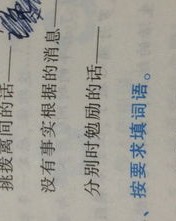 挑拨离间的话——
没有事实根据的消息——
分别时勉励的话——
、按要求填词语。